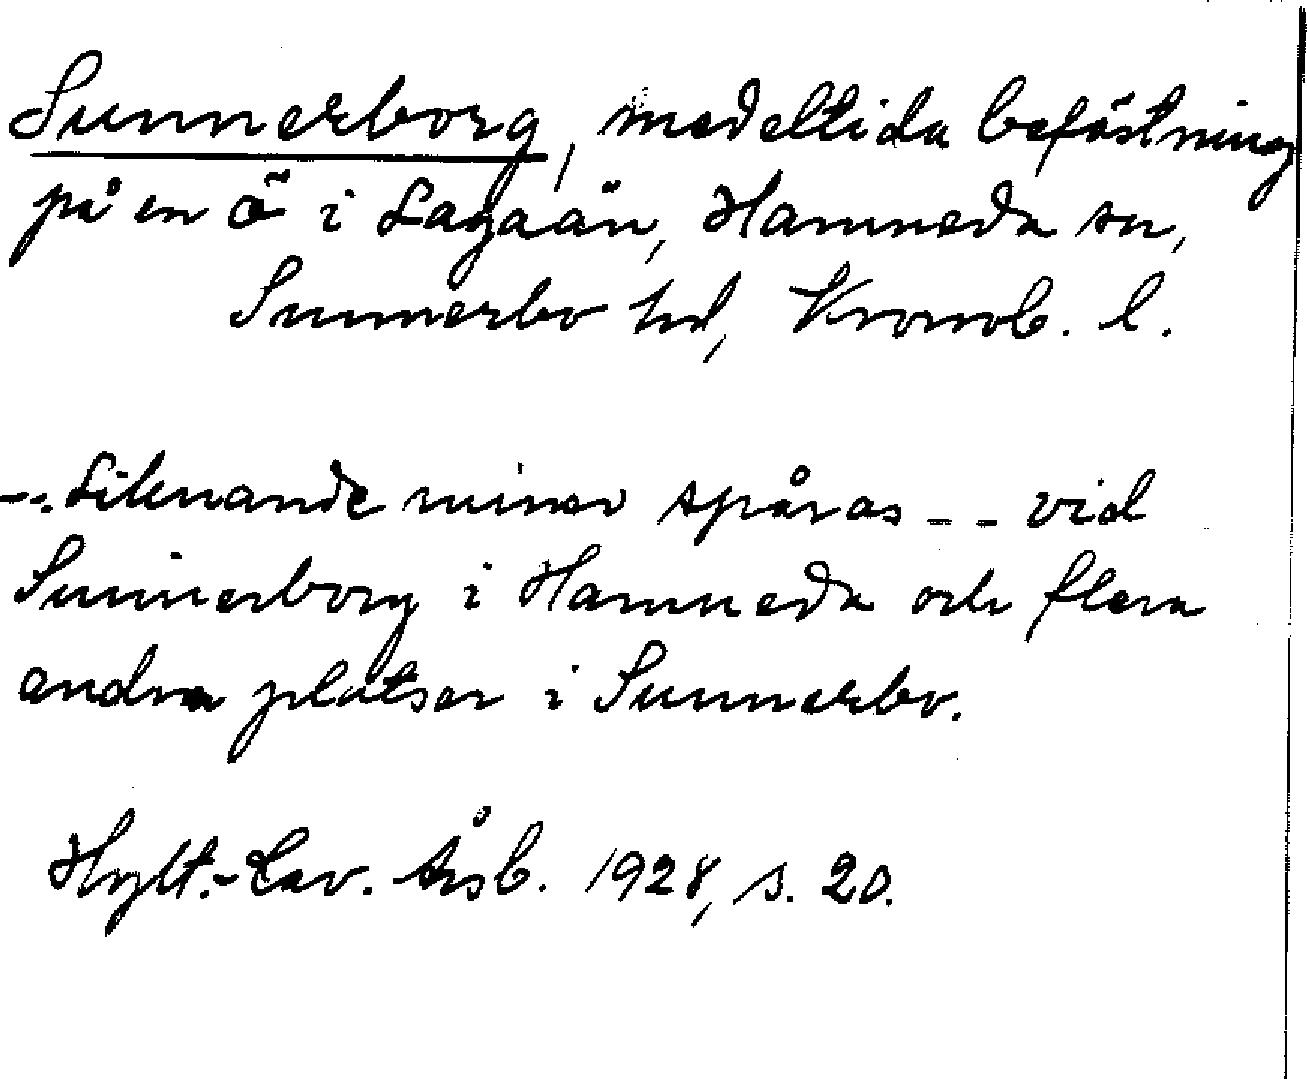 Sunnerborg, medeltida befästning
på en ö i Lagaån, Hamneda sn,
Sunnerbo hd, Kronob. l.
--. Liknande minor spåras -- vid
Sunnerborg i Hamneda och flera
andra platser i Sunnerbo.
Hylt.-Cav. Årsb. 1928, s. 20.